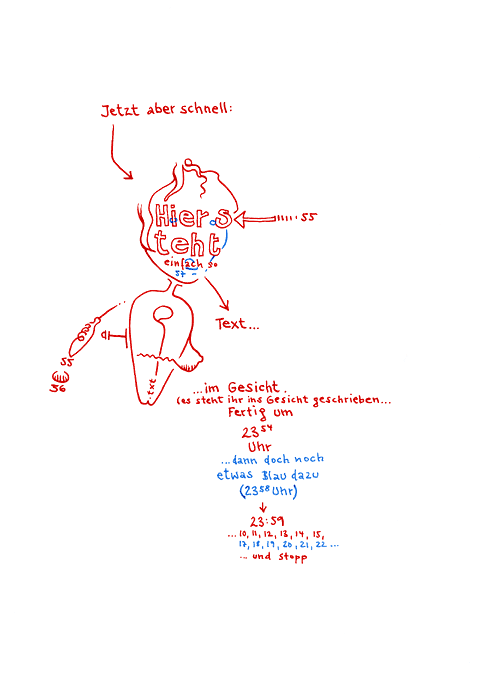 Jetzt aber schnell:
Hier s
teht
einfach so
57
55
Text...
55
56
.txt
...im Gesicht.
(es steht ihr ins Gesicht geschrieben...
Fertig um
23 54
Uhr
...dann doch noch
etwas Blau dazu
(23 58 Uhr)
23:59
...10, 11, 12, 13, 14, 15,
17, 18, 19, 20, 21, 22 ...
... und stopp